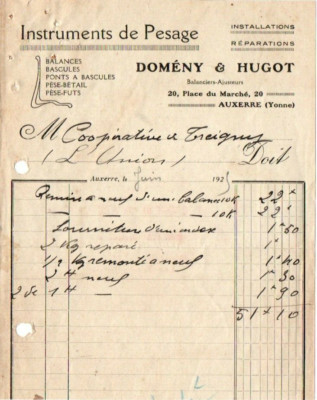 Instruments de Pesage
INSTALLATIONS
RÉPARATIONS
BALANCES
BASCULES
PONTS A BASCULES
PÈSE-BÉTAIL
PÈSE-FUTS
DOMÉNY & HUGOT
Balanciers-Ajusteurs
20, Place du Marché, 20
AUXERRE (Yonne)
M Coopérative de Treigny
(L'Union) Doit
Auxerre, le Juin 192
Remise à neuf d'une balance 10K 22
— 10K 22
Fourniture d'un index 1 60
2 Kg réparé 1
1/2 Kg remonté à neuf 1 40
2 H neuf 1 30
2 de 1 H — 1 90
51 10